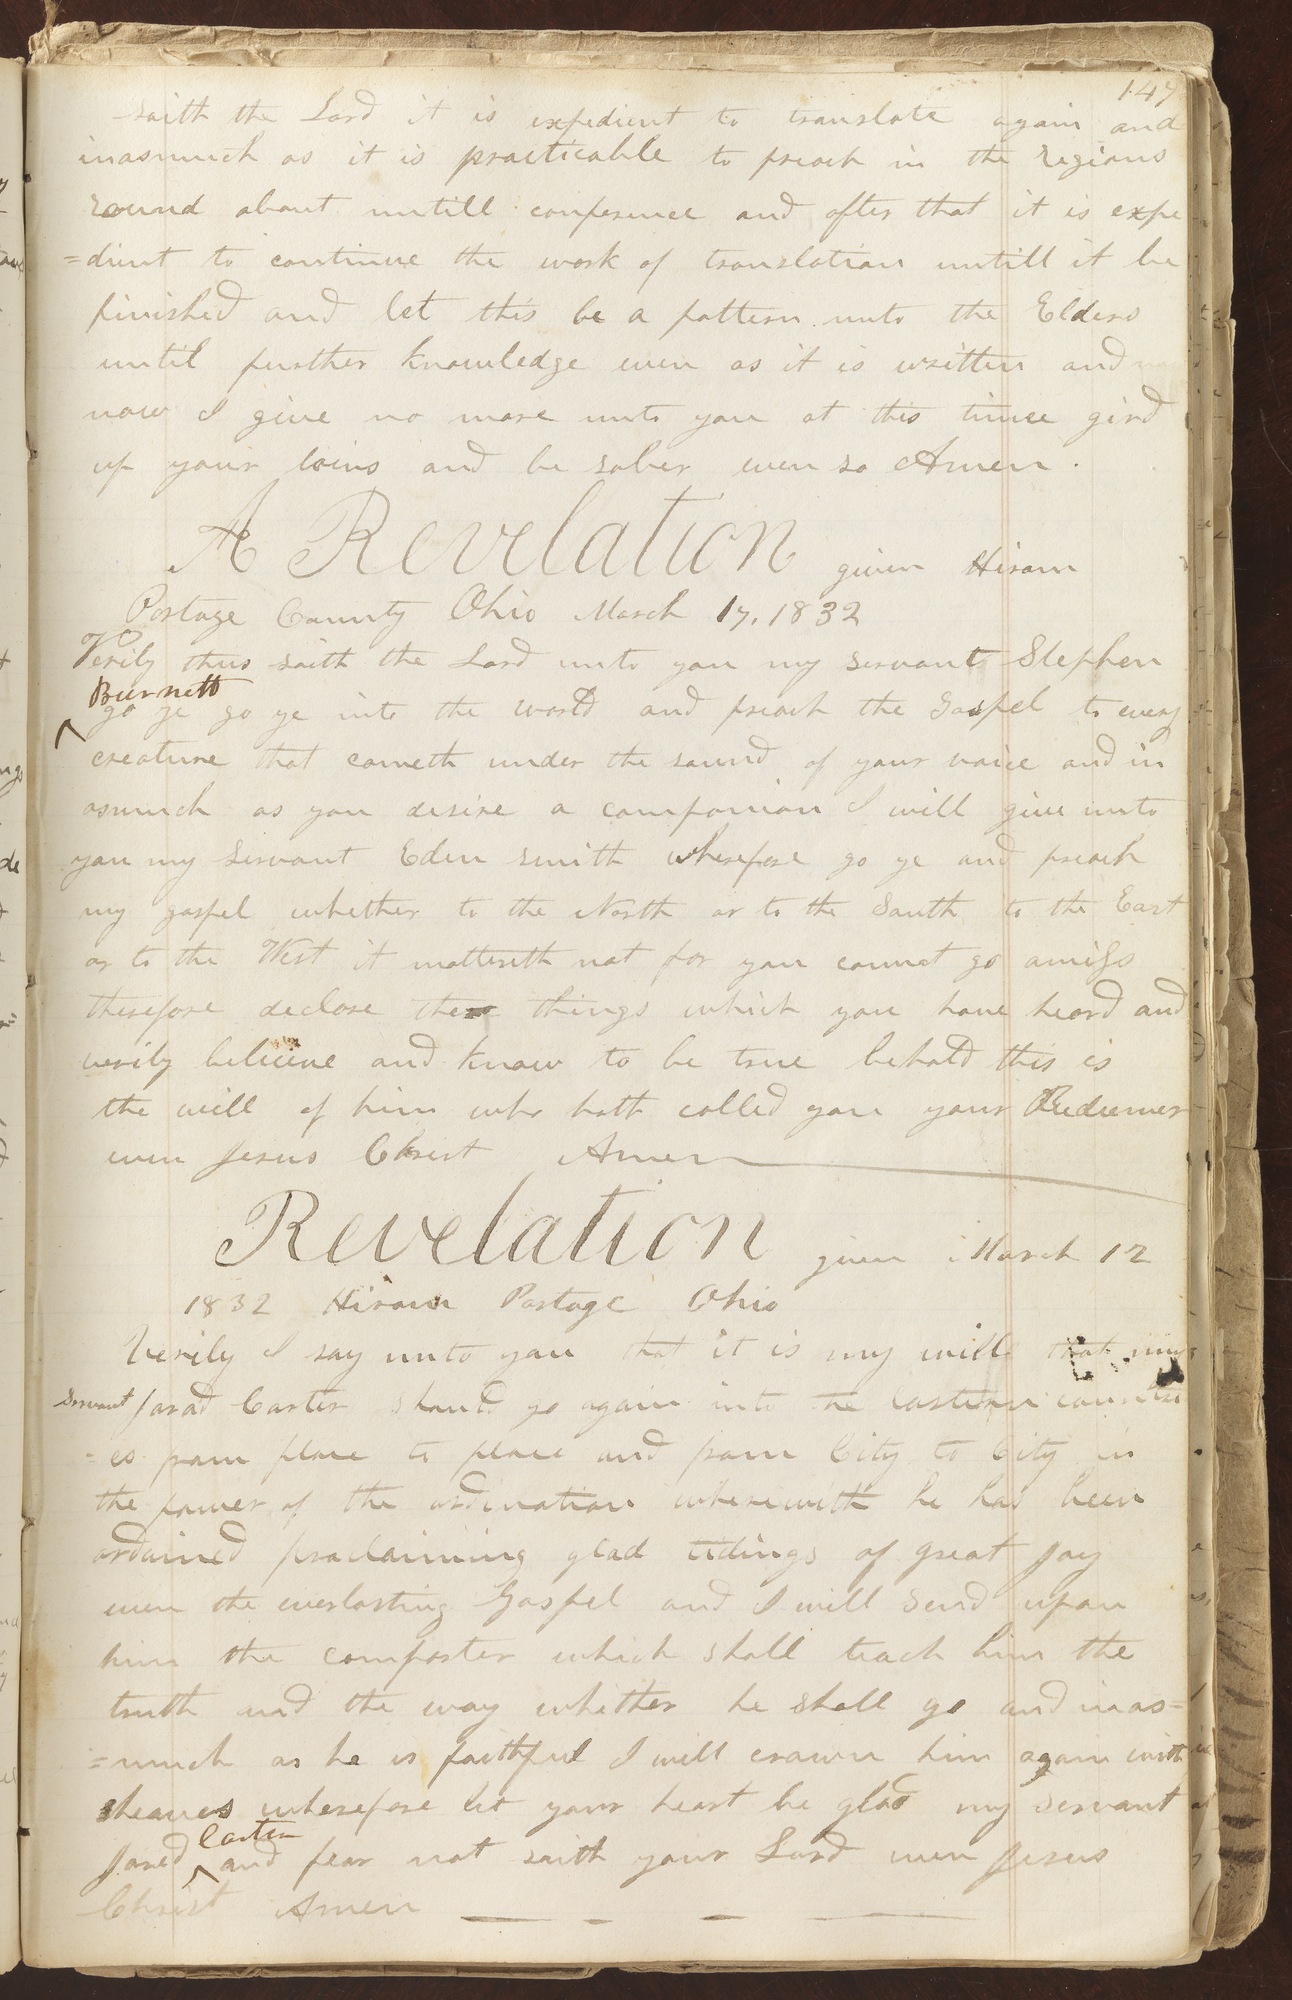 147
saith the Lord it is expedient to translate again and
inasmuch as it is practicable to preach in the regions
round about untill conference and after that it is expe
=dient to continue the work of translation untill it be
finished and let this be a pattern unto the Elders
until further knowledge even as it is written and
now I give no more unto you at this time gird
up your loins and be sober even so Amen.
A Revelation given Hiram
Portage County Ohio March 17, 1832
Verily thus saith the Lord unto you my servant Stephen
Burnett
^ go ye go ye into the world and preach the Gospel to every
creature that cometh under the sound of your voice and in
asmuch as you desire a companion I will give unto
you my servant Eden smith wherefore go ye and preach
my gospel whether to the North or to the South to the East
or to the West it mattereth not for you cannot go amiss
therefore declare these things which you have heard and
verily believe and know to be true behold this is
the will of him who hath called you your Redeemer
even Jesus Christ Amen
Revelation given March 12
1832 Hiram Portage Ohio
Verily I say unto you that it is my will that my
servant Jarad Carter should go again into the eastern countri
=es from place to place and from City to City in
the power of the ordination wherewith he has been
ordained proclaiming glad tidings of great joy
even the everlasting Gospel and I will send upon
him the comforter which shall teach him the
truth and the way whether he shall go and inas=
=much as he is faithful I will crown him again with
sheaves wherefore let your heart be glad my servant
Carter
Jared ^ and fear not saith your Lord even Jesus
Christ Amen